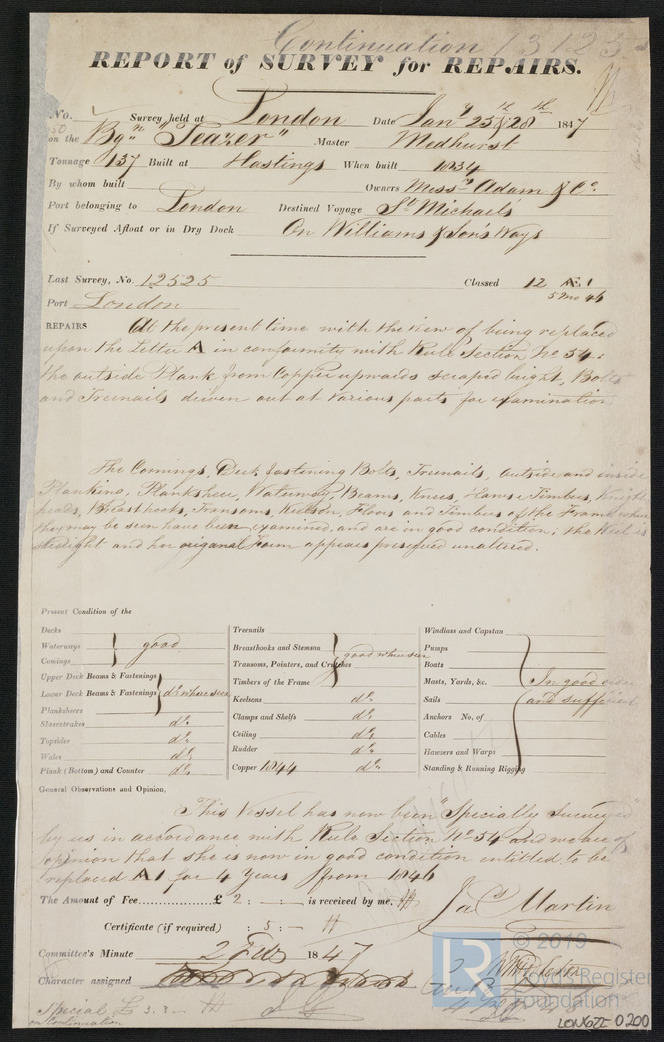 Continuation 13125
REPORT of SURVEY for REPAIRS.
No. Survey held at London Date Jany 25th & 28th 1847
on the Bgn "Teazer" Master Medhurst
Tonnage 137 Built at Hastings When built 1834
By whom built Owners Messrs Adam & Co.
Port belonging to London Destined Voyage St Michael's
If Surveyed Afloat or in Dry Dock On Williams & Son's Ways
Last Survey, No. 12525 Classed 12 Æ 1
Port London 5 Mo 46
REPAIRS At the present time with the view of being replaced
upon the Letter A in conformity with Rule Section No 54:
the outside Plank from Copper upwards scraped bright, Bolts
and Treenails driven out at various parts for examination
The Comings, Deck fastening Bolts, Treenails, outside and inside
Planking, Plankshear, Waterway, Beams, Knees, Hawse Timbers, Knight
heads, Breasthooks, Transoms, Keelson, Floors and Timbers of the Frame where
they may be seen have been examined and are in good condition; the Keel is
straight and her original Form appears preserved unaltered.
Present Condition of the
Decks
Waterways good
Comings
Upper Deck Beams & Fastenings
Lower Deck Beams & Fastenings do where seen
Plansheers
Sheerstrakes do
Topsides do
Wales do
Plank (Bottom) and Counter do
Treenails
Breasthooks and Stemson good where seen
Transoms, Pointers, and Crutches
Timbers of the Frame
Keelsons do
Clamps and Shelfs do
Ceiling do
Rudder do
Copper 1844 do
Windlass and Capstan
Pumps
Boats
Masts, Yards, &c. In good order
Sails and sufficient
Anchors No. of
Cables
Hawsers and Warps
Standing & Running Rigging
General Observations and Opinion,
This Vessel has now been "Specially Surveyed"
by us in accordance with Rule Section No 54 and we are of
opinion that she is now in good condition entitled to be
replaced A1 for 4 Years from 1846
The Amount of Fee £ 2 : - : - is received by me,
Jas Martin
Certificate (if required) : 5 : -
Committee's Minute 2 Feby 1847
Character assigned
Special £ 3.3 -
on Continuation
LR © 2019
Lloyds Register
Foundation
LON622-0200